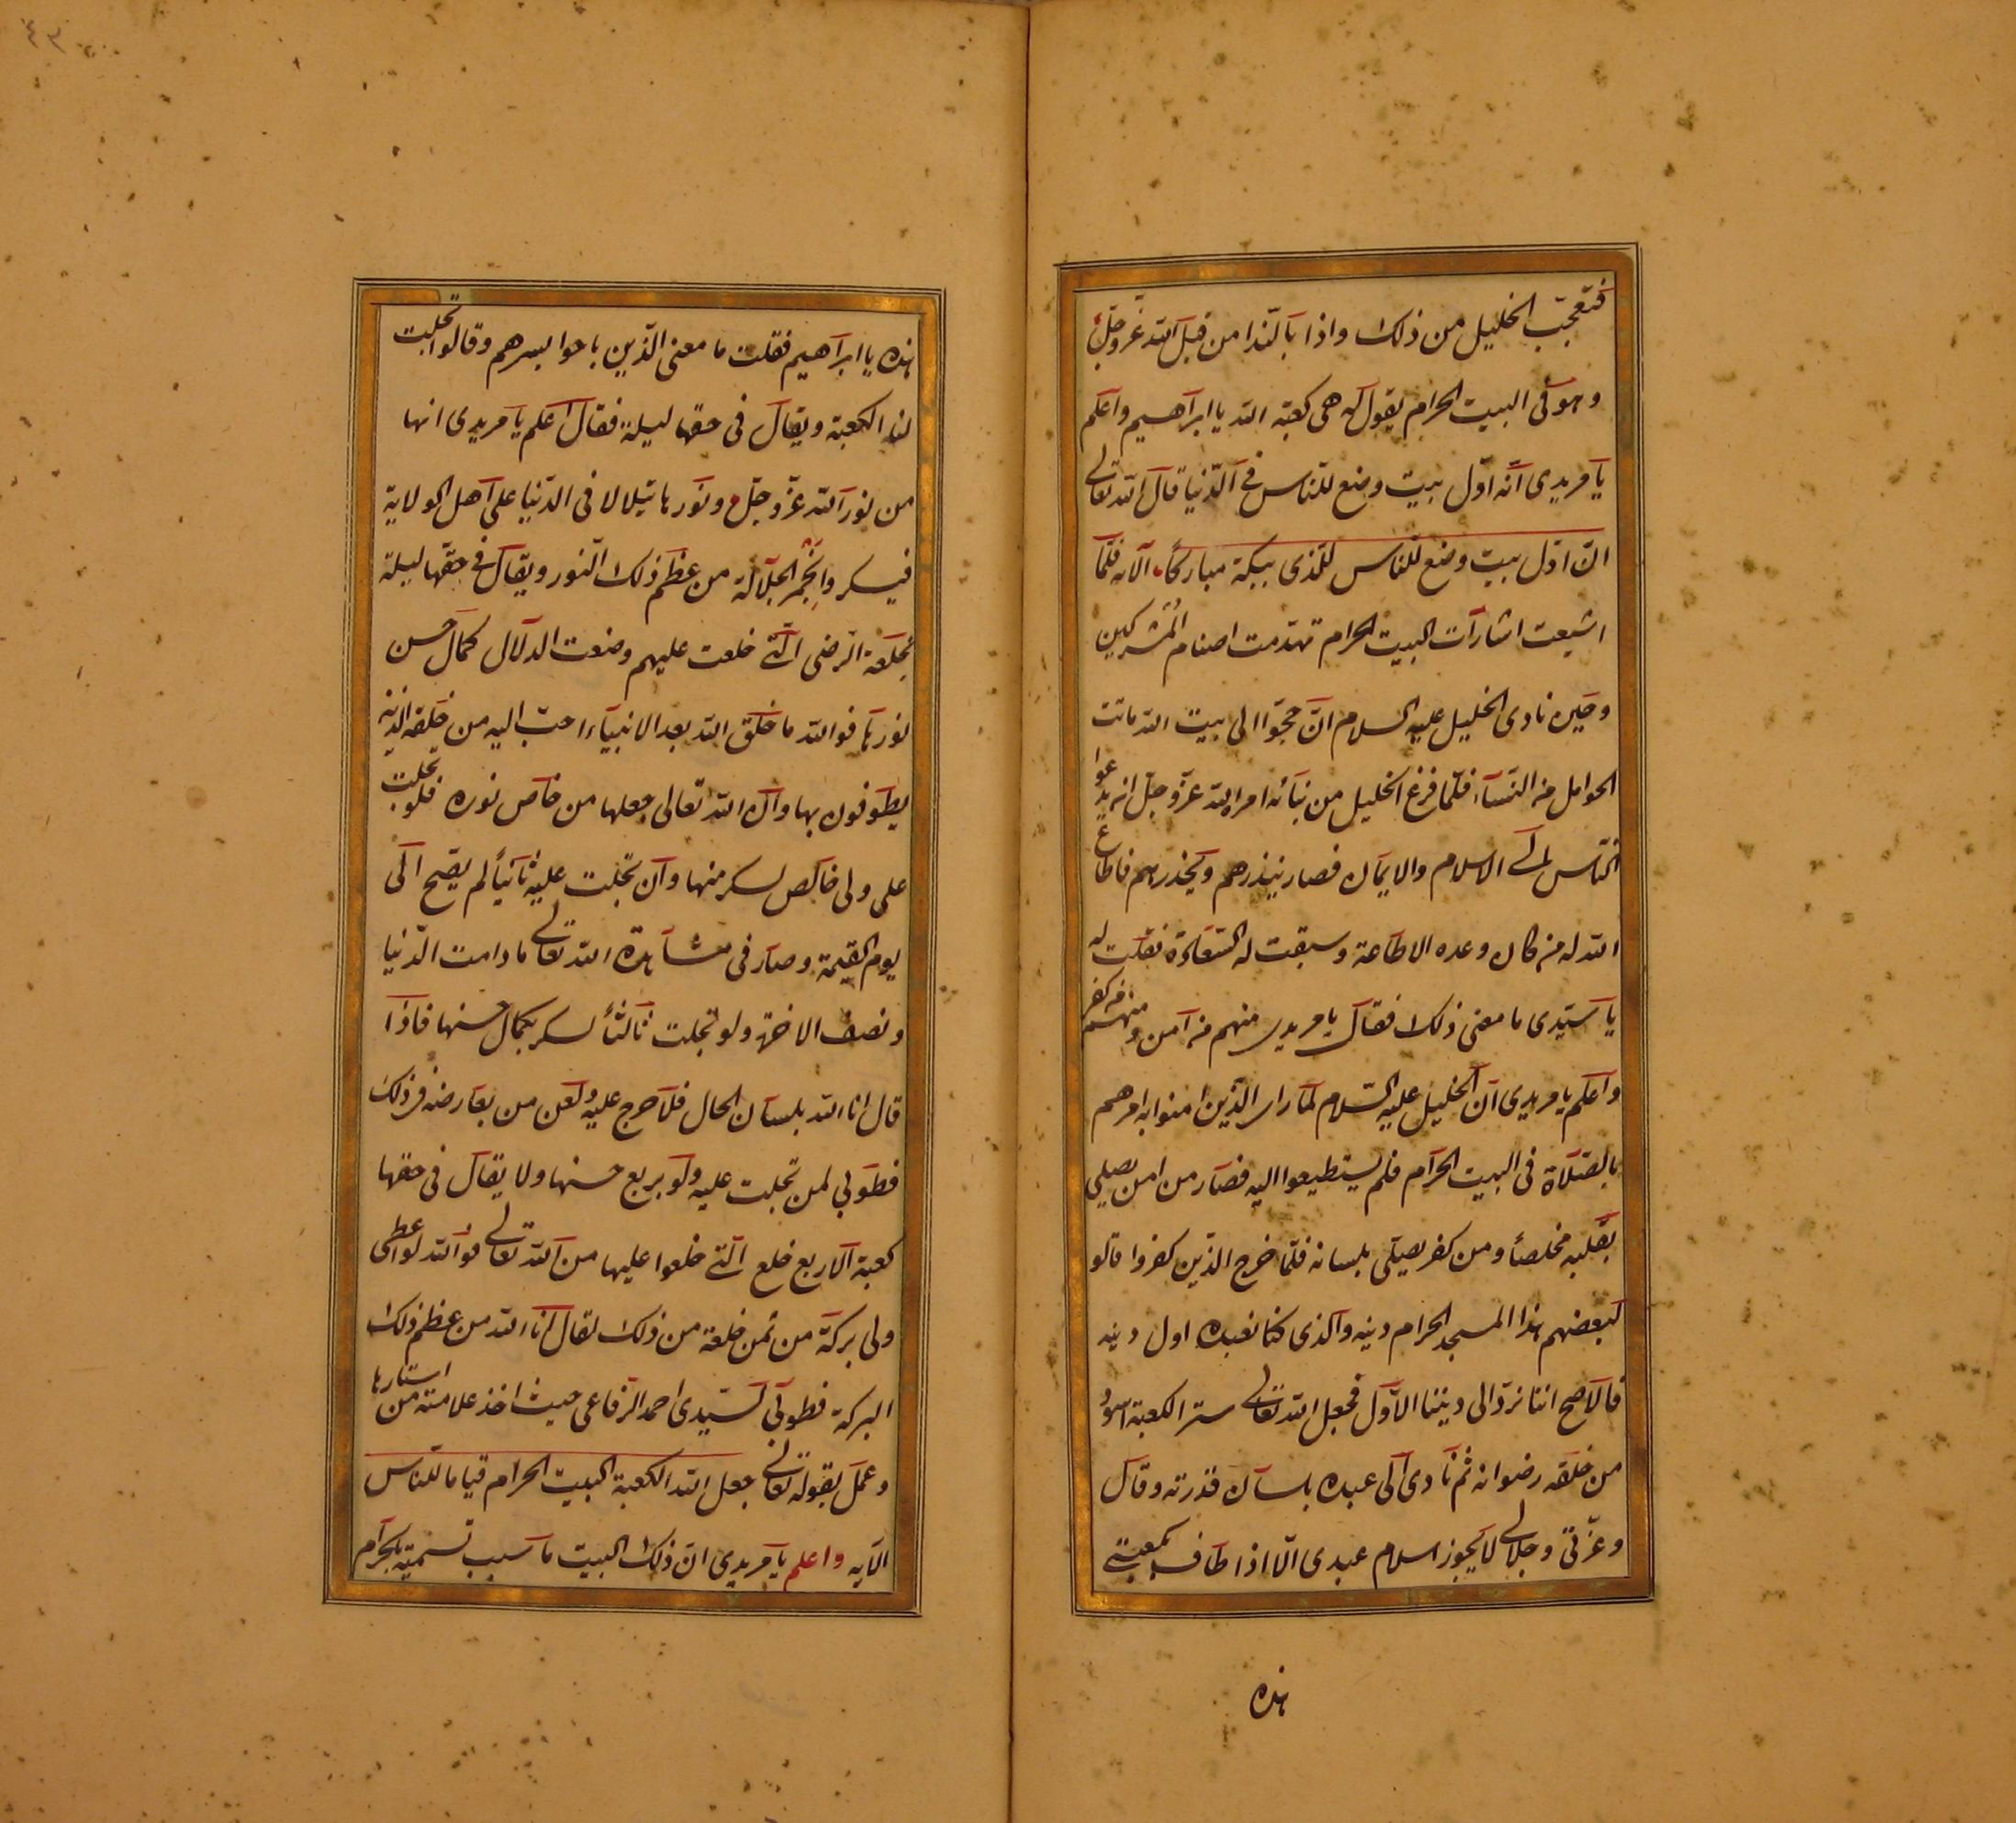 فتعجّب الخليل من ذلك واذا بالندا من قبل الله عزّ وجلّ
وهو فى البيت الحرام يقول له هى كعبة الله يا ابراهيم واعلم
يا مريدى انّه اوّل بيت وضع للنّاس فى الدّنيا قال الله تعالى
انّ اوّل بيت وضع للنّاس للّذى ببكة مباركاً الآيه فلمّا
اشيعت اشارات البيت الحرام تهدّمت اصنام المُشركين
وحين نادى الخليل عليه السلام انّ حجّوا الى بيت الله ماتت
الحوامل من النسآء فلمّا فرغ الخليل من بنائه امره الله عزّ وجلّ انه يدعوا
النّاس الى الاسلام والايمان فصار ينذرهم ويحذرهم فاطاع
الله له من كان وعده الاطاعة وسبقت له السّعادة فقلت له
يا سيّدى ما معنى ذلك فقال يا مريدى منهم من آمن ومنهم من كفر
واعلم يا مريدى انّ الخليل عليه السّلام لمّا راى الذّين امنوا به امرهم
بالصّلاة فى البيت الحرام فلم يستطيعوا اليه فصار من امن يصلى
بقلبه مخلصاً ومن كفر يصلّى بلسانه فلمّا خرج الذّين كفروا قالو
لبعضهم هذا المسجد الحرام دينه والذى كنّا نعبده اول دينه
فالاصح اننا نردّ الى ديننا الاوّل فجعل الله تعالى ستر الكعبة اسودُ
من خلقه رضوانه ثم نادى الى عبده بلسان قدرته وقال
وعزّتى وجلالى لا يجوز اسلام عبدى الّا اذا طاف بكعبتى
هذه
هذه يا ابراهيم فقلت ما معنى الذّين باحوا بسرهم وقالوا تجلت
لنا الكعبة ويقال فى حقها ليلة فقال اعلم يا مريدى انها
من نور الله عزّ وجلّ ونورها يتلالا فى الدّنيا على اهل الولاية
فيسكروا بخمر الجلالة من عظم ذلك النّور ويقال فى حقّها ليلة
بخلعة الرّضى الّتى خلعت عليهم وضعت الدلال كمال حسن
نورها فوالله ما خلق الله بعد الانبيآء احبّ اليه من خلقه الذين
يطوفون بها وانّ الله تعالى جعلها من خاص نوره فلو تجلت
على ولى خالص لسكر منها وان تجلت عليه ثانياً لم يصح الى
يوم القيمة وصار فى مشاهدة الله تعالى ما دامت الدّنيا
ونصف الاخرة ولو تجلت ثالثاً لسكر بكمال حسنها فاذا
قال انا الله بلسان الحال فلا حرج عليه ولعن من يعارضه فى ذلك
فطوبى لمن تجلت عليه ولو بربع حسنها ولا يقال فى حقها
كعبة الاربع خلع الّتى خلعوا عليها من الله تعالى فوالله لو اعطى
ولى بركة من ثمن خلعة من ذلك لقال انا الله من عظم ذلك
البركة فطوبى لسيّدى احمد الرّفاعى حيث اخذ علامته من استارها
وعمل بقوله تعالى جعل الله الكعبة البيت الحرام قياما للنّاس
الآيه واعلم يا مريدى انّ ذلك البيت ما سبب تسميته بالحرام
٤٣